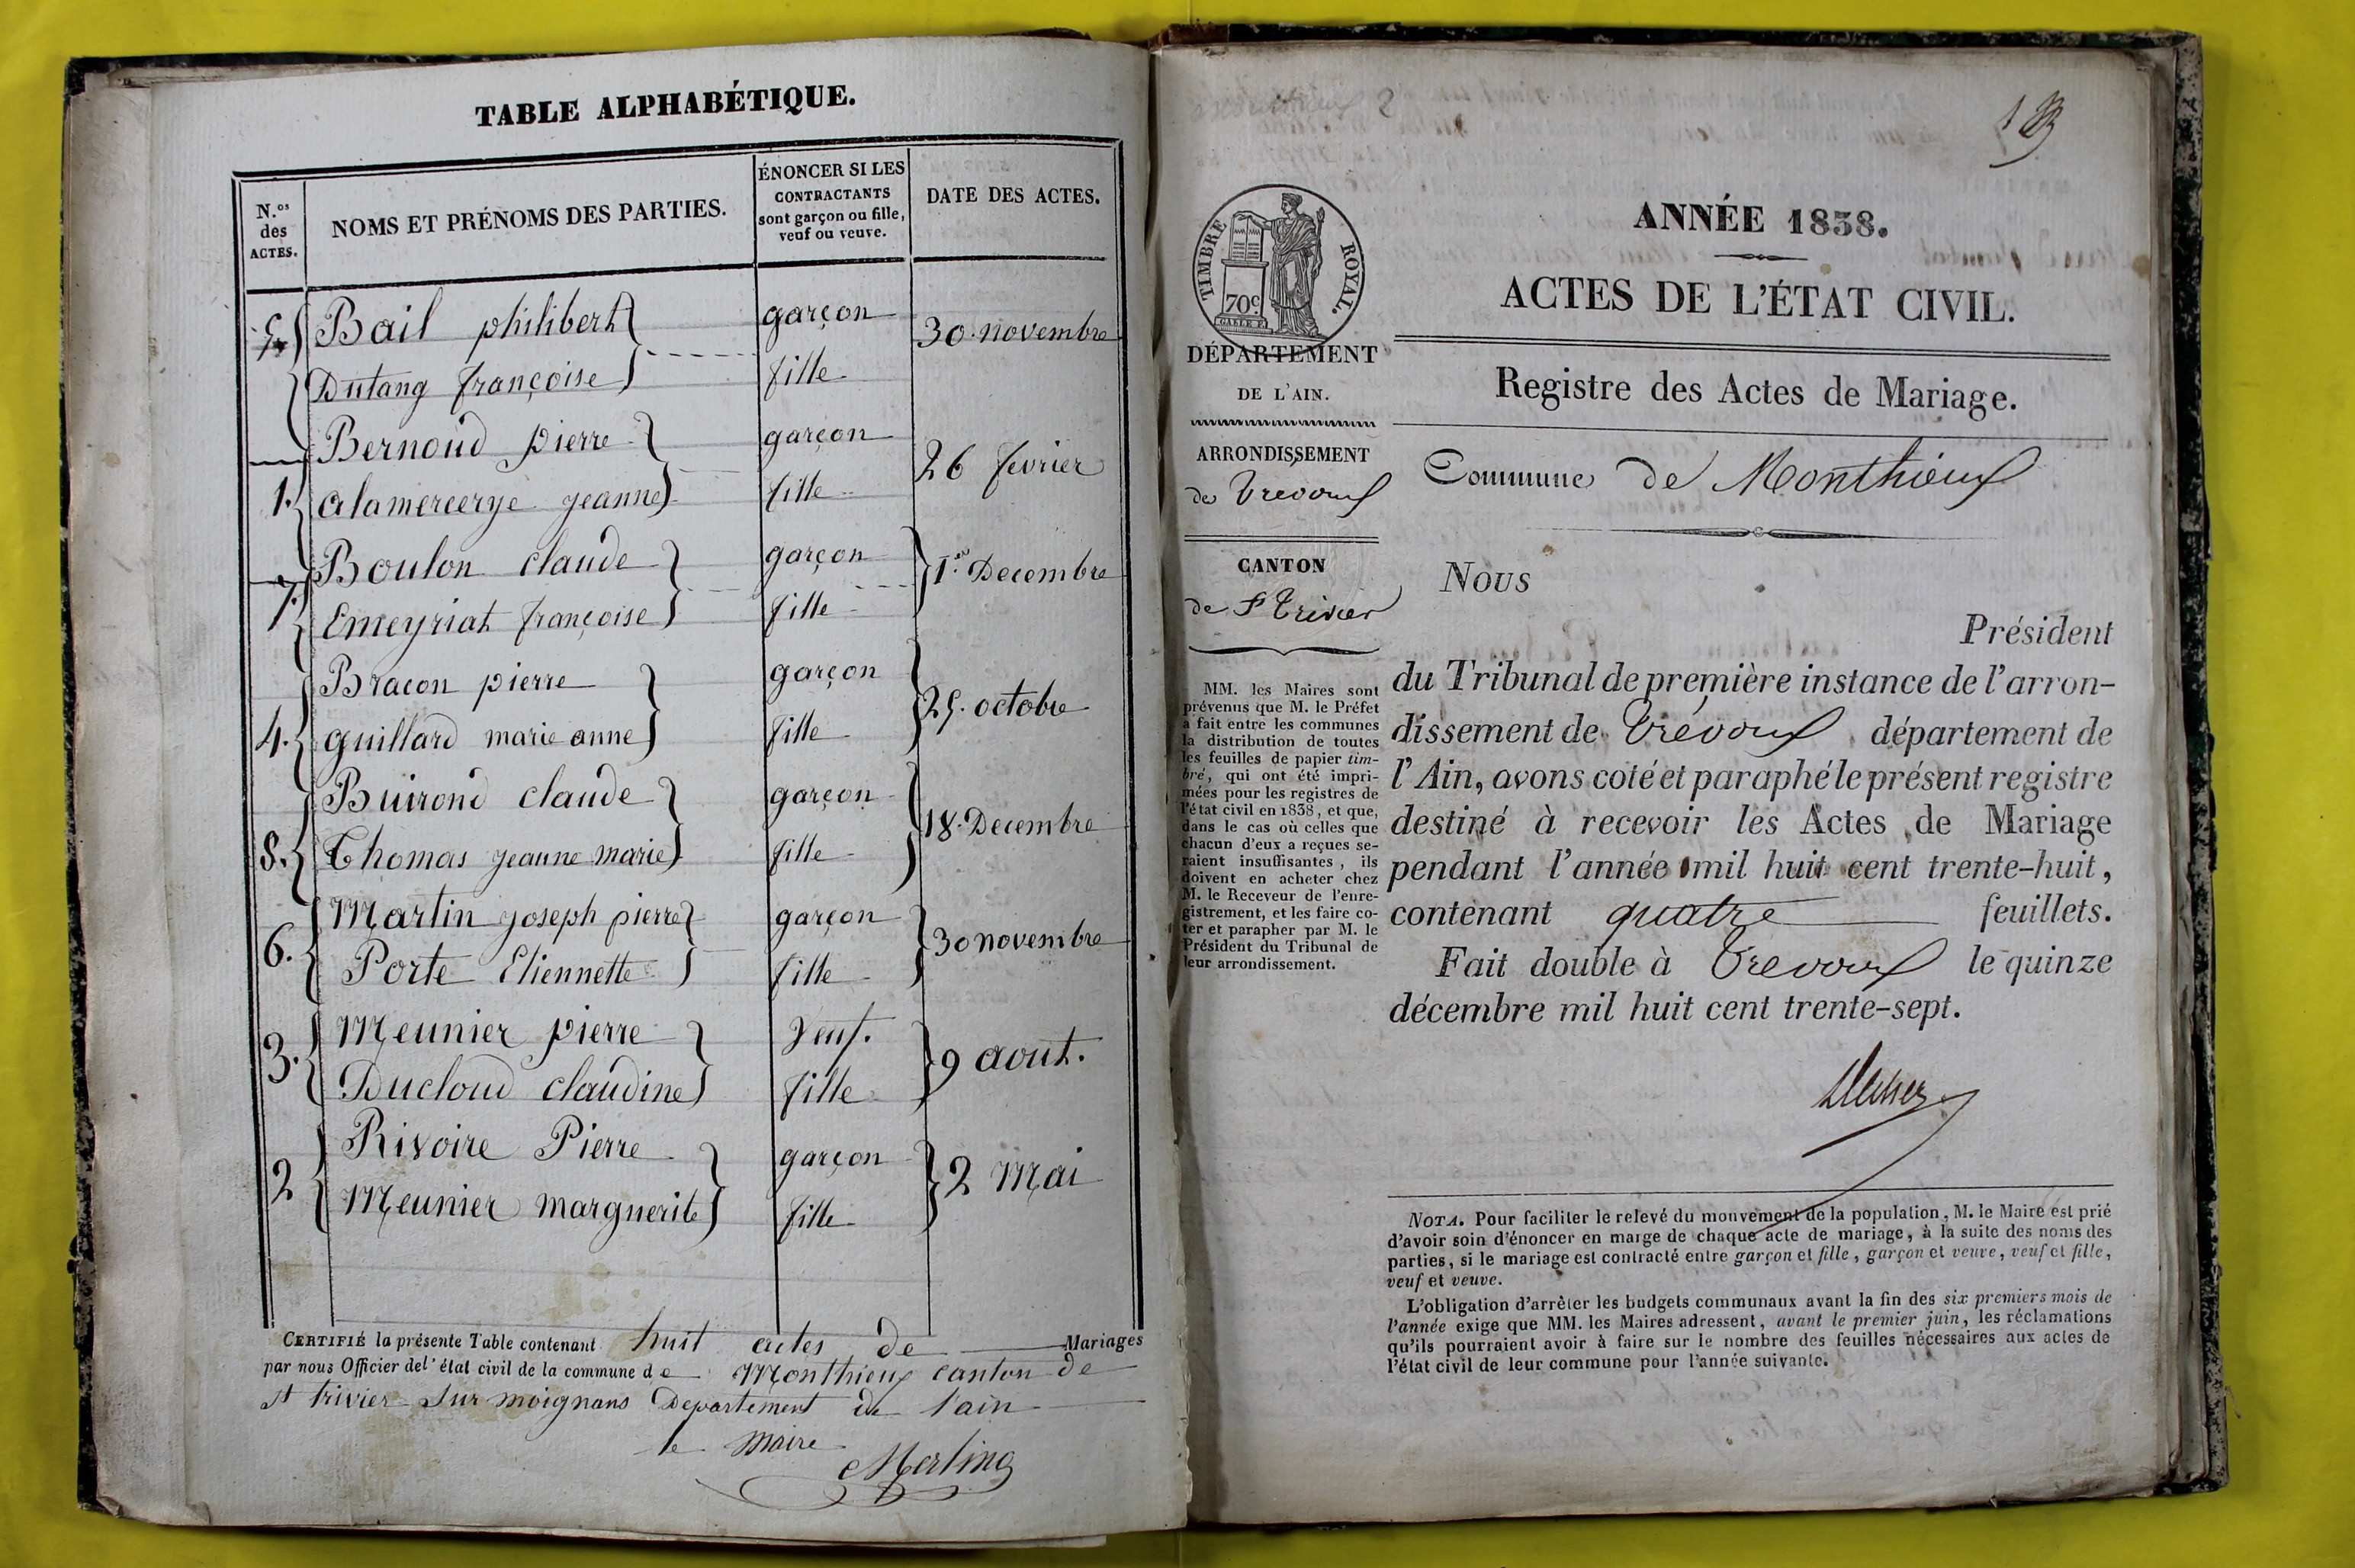 TABLE ALPHABÉTIQUE.
N.os des ACTES.
NOMS ET PRÉNOMS DES PARTIES.
ÉNONCER SI LES
CONTRACTANTS
sont garçon ou fille,
veuf ou veuve.
DATE DES ACTES.
5. Bail philibert garçon 30. novembre
Dutang françoise fille
Bernoud pierre garçon 26 fevrier
1. alamercerye jeanne fille
7. Boulon claude garçon 1.er Decembre
Emeyriat françoise fille
Bracon pierre garçon 25. octobre
4. guillard marie anne fille
Buirond claude garçon 18. Decembre
8. Thomas jeanne marie fille
6. Martin joseph pierre garçon 30 novembre
Porte Etiennette fille
3. Meunier pierre Veuf. 9 aout.
Ducloud claudine fille
2 Rivoire Pierre garçon 2 Mai
Meunier marguerite fille
CERTIFIÉ la présente Table contenant huit actes de Mariages
par nous Officier de l'état civil de la commune de Monthieux canton de
st trivier sur moignans Departement de l'ain
le maire
Merlino
ANNÉE 1838.
ACTES DE L'ÉTAT CIVIL.
Registre des Actes de Mariage.
Commune de Monthieux
TIMBRE ROYAL.
70c
DÉPARTEMENT
DE L'AIN.
ARRONDISSEMENT
de Trevoux
CANTON
de St Trivier
MM. les Maires sont
prévenus que M. le Préfet
a fait entre les communes
la distribution de toutes
les feuilles de papier tim-
bré, qui ont été impri-
mées pour les registres de
l'état civil en 1838, et que,
dans le cas où celles que
chacun d'eux a reçues se-
raient insuffisantes, ils
doivent en acheter chez
M. le Receveur de l'enre-
gistrement, et les faire co-
ter et parapher par M. le
Président du Tribunal de
leur arrondissement.
Nous
Président
du Tribunal de première instance de l'arron-
dissement de Trévoux département de
l'Ain, avons coté et paraphé le présent registre
destiné à recevoir les Actes de Mariage
pendant l'année mil huit cent trente-huit,
contenant quatre feuillets.
Fait double à Trevoux le quinze
décembre mil huit cent trente-sept.
NOTA. Pour faciliter le relevé du mouvement de la population, M. le Maire est prié
d'avoir soin d'énoncer en marge de chaque acte de mariage, à la suite des noms des
parties, si le mariage est contracté entre garçon et fille, garçon et veuve, veuf et fille,
veuf et veuve.
L'obligation d'arrêter les budgets communaux avant la fin des six premiers mois de
l'année exige que MM. les Maires adressent, avant le premier juin, les réclamations
qu'ils pourraient avoir à faire sur le nombre des feuilles nécessaires aux actes de
l'état civil de leur commune pour l'année suivante.